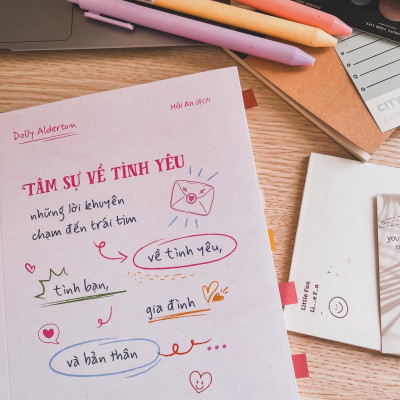 Dolly Alderton
Hải An dịch
TÂM SỰ VỀ TÌNH YÊU
những lời khuyên
chạm đến trái tim
về tình yêu,
tình bạn,
gia đình
và bản thân
CITY
Little Fun
you